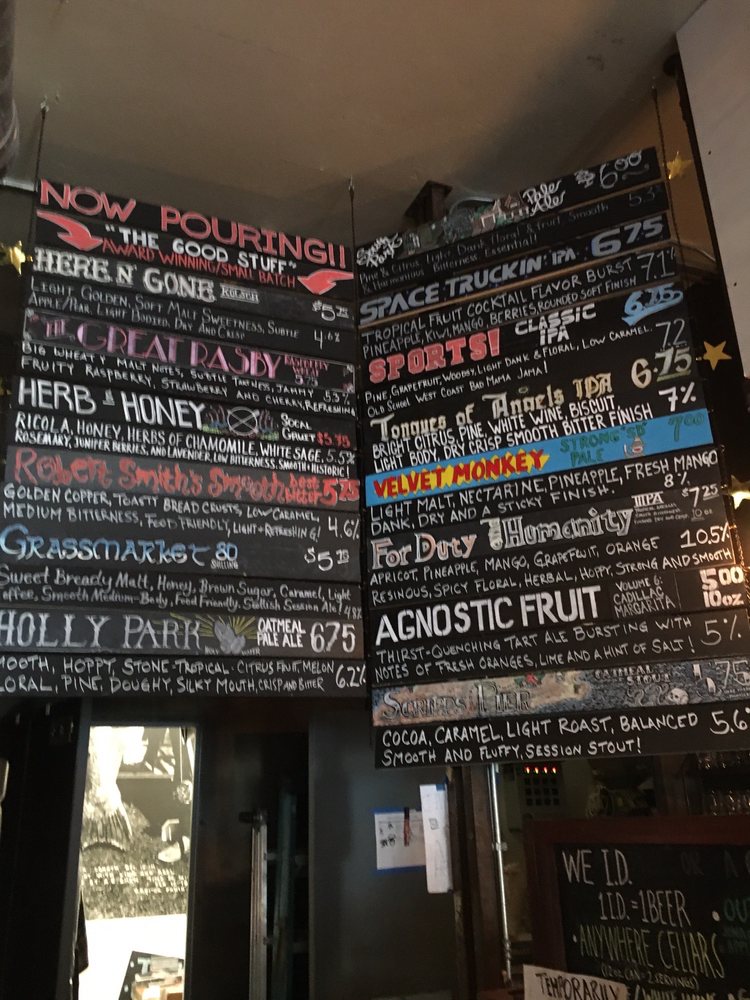 NOW POURING!!
"THE GOOD STUFF"
AWARD WINNING/SMALL BATCH
HERE N' GONE KOLSCH
$5
LIGHT GOLDEN, SOFT MALT SWEETNESS, SUBTLE
APPLE/PEAR, LIGHT BODIED, DRY AND CRISP 4.6%
GREAT RASBY RASPBERRY
5.75
BIG WHEATY MALT NOTES, SUBTLE TARTNESS, JAMMY 5.3%
FRUITY RASPBERRY, STRAWBERRY AND CHERRY, REFRESHING
HERB & HONEY SOCAL GRUIT $5.75
RICOLA, HONEY, HERBS OF CHAMOMILE, WHITE SAGE, 5.5%
ROSEMARY, JUNIPER BERRIES, AND LAVENDER, LOW BITTERNESS, SMOOTH + HISTORIC!
Robert Smith's Smooth best bitter 5.75
GOLDEN COPPER, TOASTY BREAD CRUSTS, LOW CARAMEL,
MEDIUM BITTERNESS, FOOD FRIENDLY, LIGHT + REFRESHING! 4.6%
GRASSMARKET 80 SHILLING $5.75
Sweet Bready Malt, Honey, Brown Sugar, Caramel, Light
offee, Smooth Medium-Body, Food Friendly, Scottish Session Ale! 4.8%
HOLLY PARK OATMEAL PALE ALE 6.75
MOOTH, HOPPY, STONE-TROPICAL-CITRUS FRUIT, MELON
LORAL, PINE, DOUGHY, SILKY MOUTH, CRISP AND BITTER 6.2%
Pale Ale $6.00
Pine & Citrus, Light Dank Floral & fruit, Smooth 5.3
& Harmonious Bitterness Essential!
SPACE TRUCKIN' IPA 6.75
TROPICAL FRUIT COCKTAIL FLAVOR BURST 7.1%
PINEAPPLE, KIWI, MANGO, BERRIES, ROUNDED SOFT FINISH
SPORTS! CLASSIC IPA 6.75
PINE, GRAPEFRUIT, WOODSY, LIGHT DANK & FLORAL, LOW CARAMEL 7.2
OLD SCHOOL WEST COAST BAD MAMA JAMA!
Tongues of Angels IPA 6.75
BRIGHT CITRUS, PINE, WHITE WINE BISCUIT, 7%
LIGHT BODY, DRY CRISP SMOOTH BITTER FINISH
VELVET MONKEY STRONG PALE 7.00
LIGHT MALT, NECTARINE, PINEAPPLE, FRESH MANGO
DANK, DRY AND A STICKY FINISH. 8%
For Duty & Humanity IIIPA $7.25
10 oz
APRICOT, PINEAPPLE, MANGO, GRAPEFRUIT, ORANGE 10.5%
RESINOUS, SPICY FLORAL, HERBAL, HOPPY, STRONG AND SMOOTH
AGNOSTIC FRUIT VOLUME 6: CADILLAC MARGARITA 5.00 10oz
THIRST-QUENCHING TART ALE BURSTING WITH 5%
NOTES OF FRESH ORANGES, LIME AND A HINT OF SALT!
SCRIPPS PIER OATMEAL STOUT 5.75
COCOA, CARAMEL, LIGHT ROAST, BALANCED 5.6
SMOOTH AND FLUFFY, SESSION STOUT!
WE I.D.
1 I.D. = 1 BEER
• ANYWHERE CELLARS
(12oz CAN = 2 SERVINGS)
TEMPORARILY